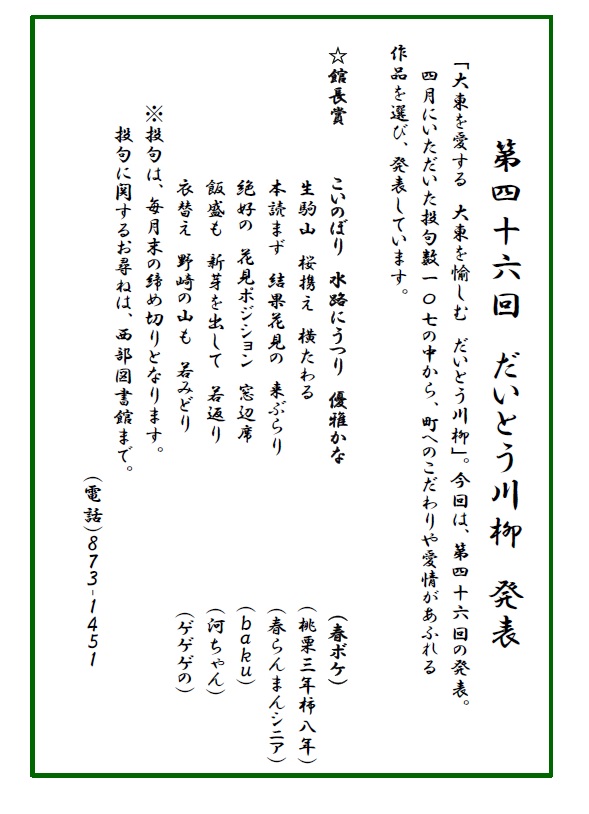 第四十六回 だいとう川柳 発表
「大東を愛する 大東を愉しむ だいとう川柳」。今回は、第四十六回の発表。
四月にいただいた投句数一〇七の中から、町へのこだわりや愛情があふれる
作品を選び、発表しています。
☆館長賞 こいのぼり 水路にうつり 優雅かな (春ボケ)
生駒山 桜携え 横たわる (桃栗三年柿八年)
本読まず 結果花見の 来ぶらり (春らんまんシニア)
絶好の 花見ポジション 窓辺席 (baku)
飯盛も 新芽を出して 若返り (河ちゃん)
衣替え 野崎の山も 若みどり (ゲゲゲの)
※投句は、毎月末の締め切りとなります。
投句に関するお尋ねは、西部図書館まで。
(電話)873-1451